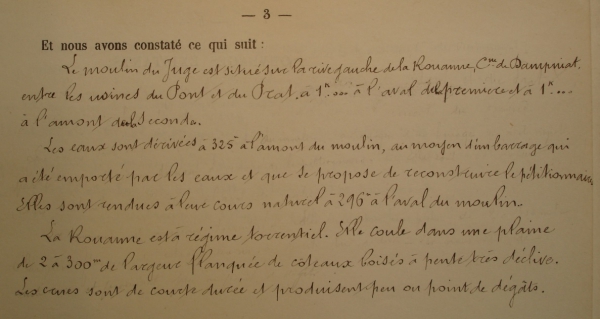 — 3 —
Et nous avons constaté ce qui suit :
Le moulin du Juge est situé sur la rive gauche de la Rouanne, Cne de Dampniat.
entre les usines du Pont et du Prat. à 1k... à l'aval de la première et à 1k...
à l'amont de la seconde.
Les eaux sont dérivées à 325m à l'amont du moulin, au moyen d'un barrage qui
a été emporté par les eaux et que se propose de reconstruire le pétitionnaire
Elles sont rendues à leur cours naturel à 296m à l'aval du moulin.
La Rouanne est à régime torrentiel. Elle coule dans une plaine
de 2 à 300m de largeur flanquée de coteaux boisés à pente très déclive.
Les crues sont de courte durée et produisent peu ou point de dégâts.